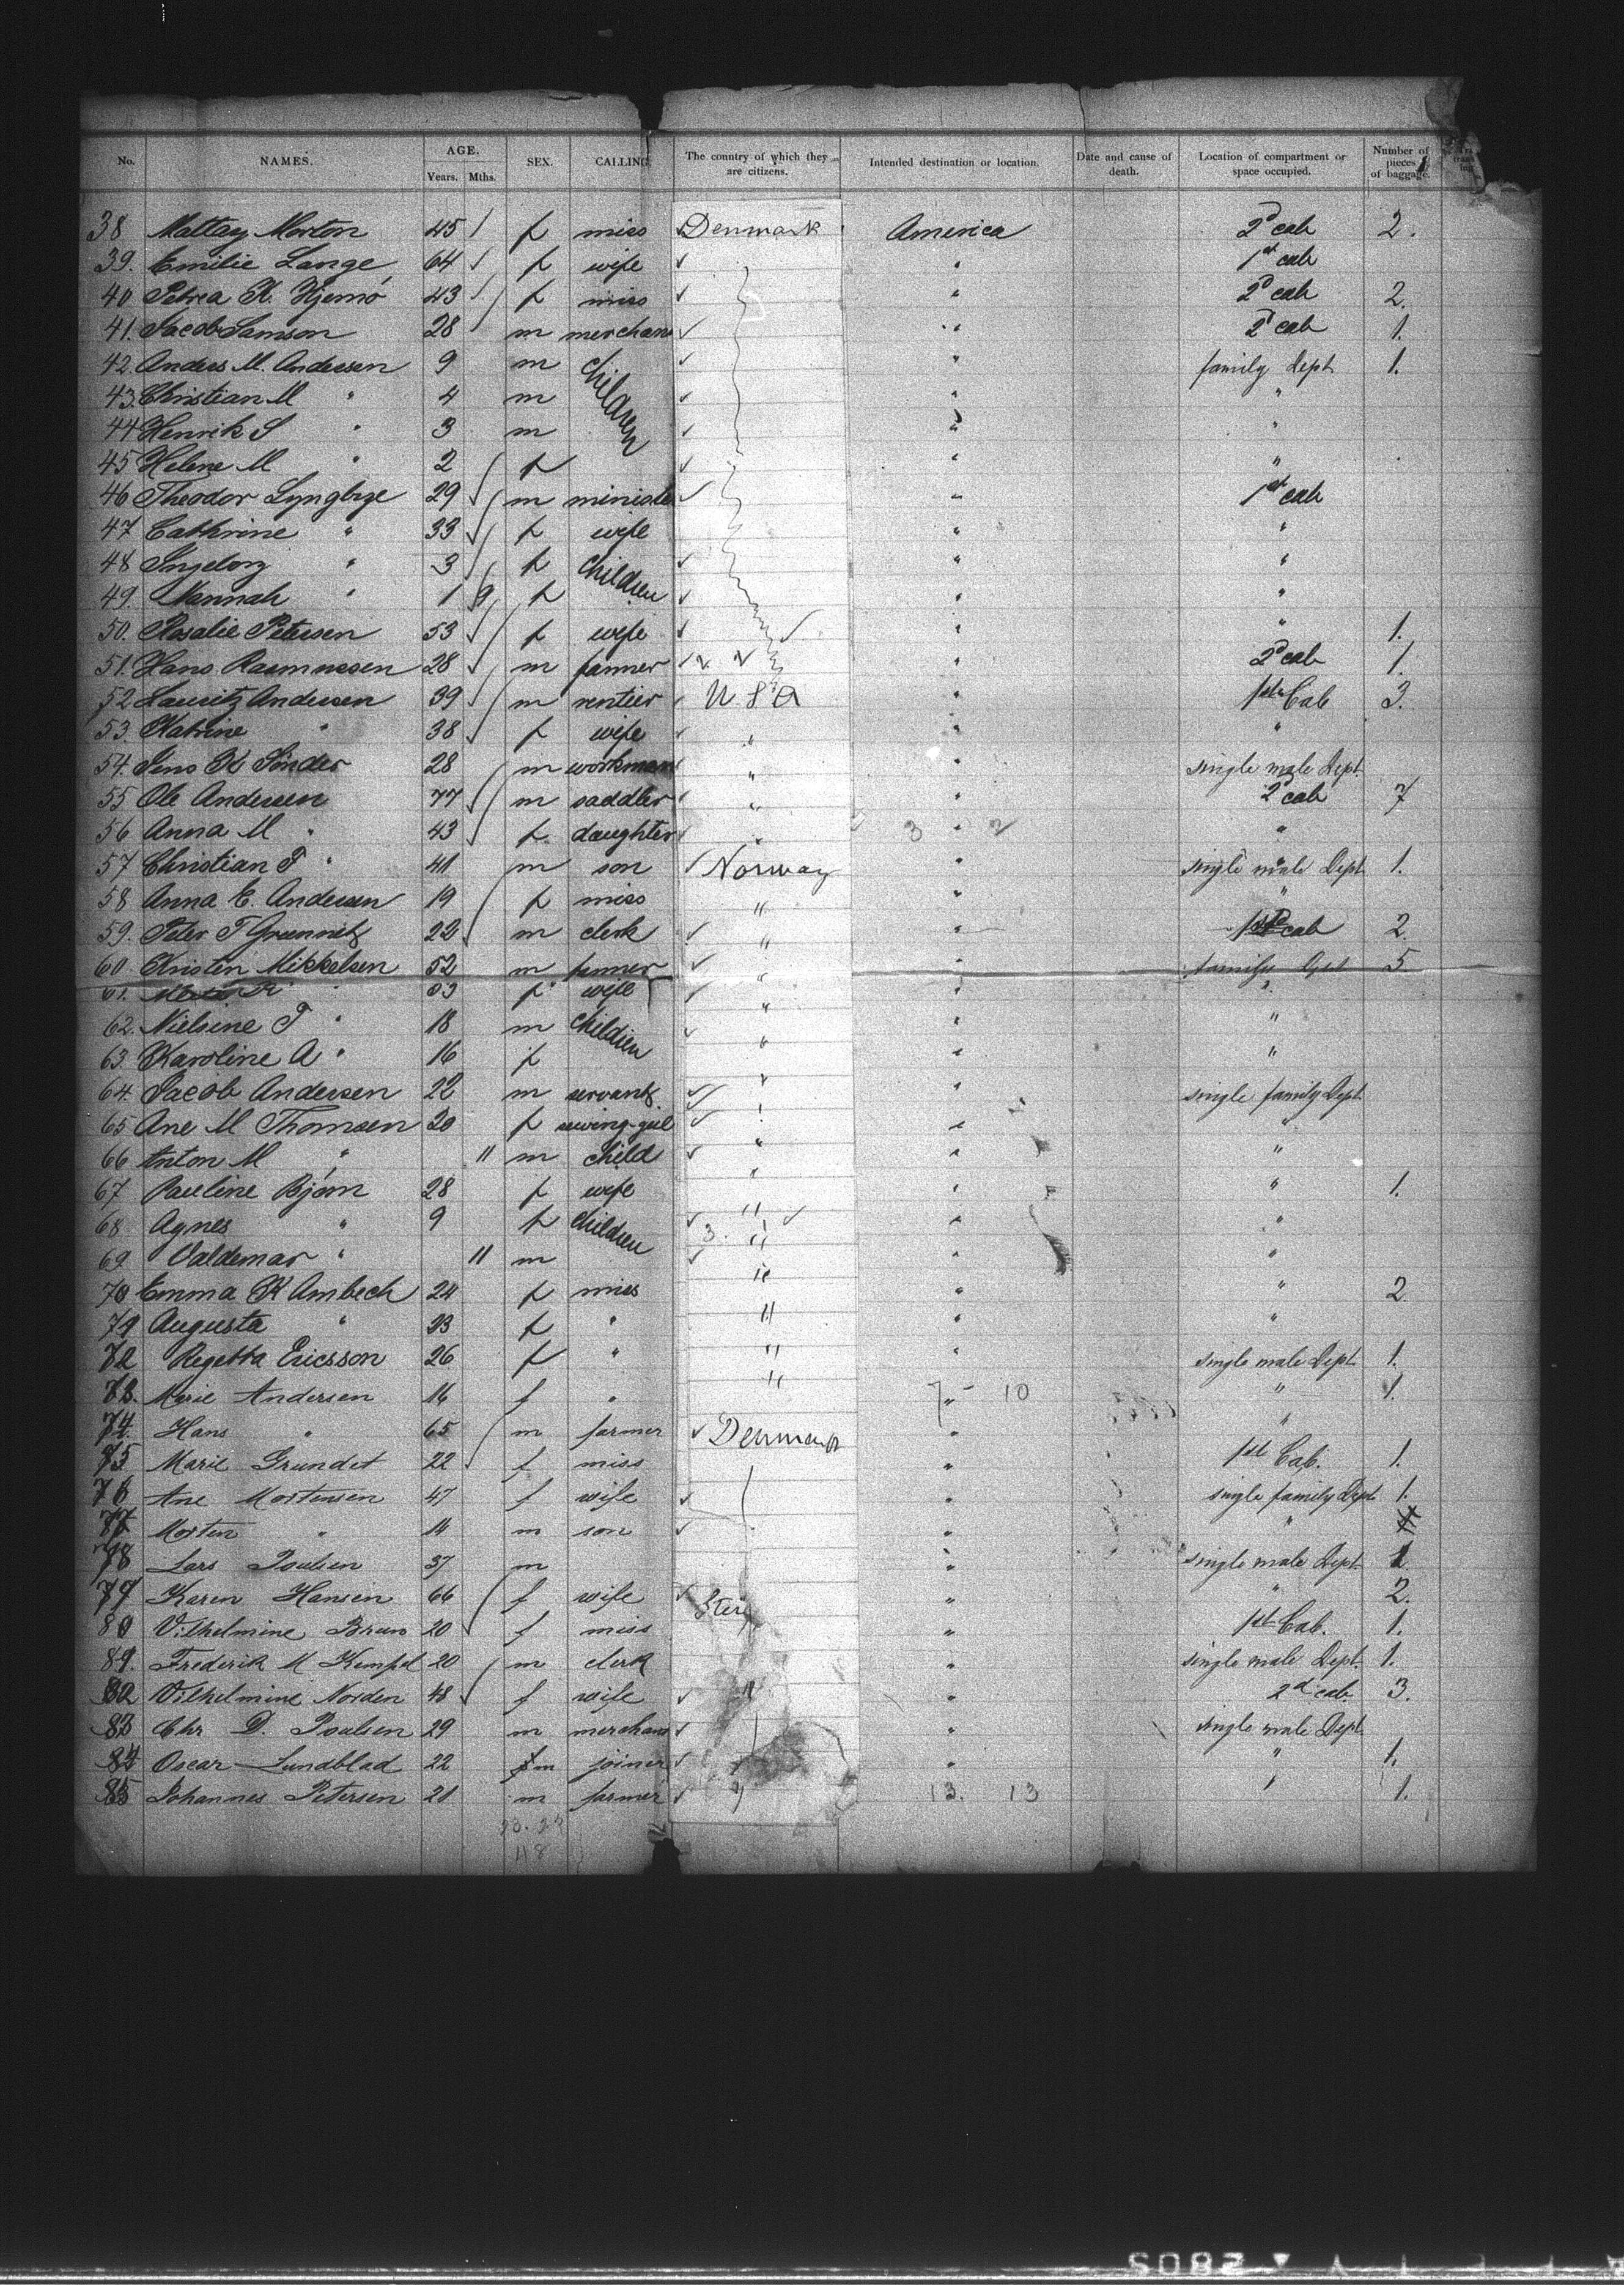 No. NAMES. AGE. Years. Mths. SEX. CALLING The country of which they are citizens. Intended destination or location. Date and cause of death. Location of compartment or space occupied. Number of pieces of baggage.
38 Mattay Morton 45 f miss Denmark America 2d cab 2.
39. Emilie Lange 64 f wife " 1st cab
40 Petrea K. Hjemo 43 f miss " 2d cab 2.
41. Jacob Samson 28 m merchant " 2d cab 1.
42. Anders M. Andersen 9 m children " family Dept 1.
43. Christian M " 4 m " "
44 Henrik S " 3 m " "
45 Helene M " 2 f " "
46 Theodor Lyngbye 29 m minister " 1st cab
47 Cathrine " 33 f wife " "
48 Ingeborg " 3 f children " "
49. Nannah " 1 9 f " "
50. Rosalie Petersen 53 f wife " " 1.
51. Hans Rasmussen 28 m farmer " 2d cab 1.
52 Lauritz Andersen 39 m rentier U.S.A " 1st Cab 3.
53 Katrine " 38 f wife " " "
54. Jens K 28 m workman " " single male Dept
55 Ole Andersen 77 m saddler " " 2d cab 7
56 Anna M " 43 f. daughter " 3 " 2 "
57 Christian T " 41 m son Norway " single male Dept 1.
58 Anna C. Andersen 19 f miss " " "
59. Peter T 22 m clerk " " 1st cab 2.
60. Kristen Mikkelsen 52 m farmer " " family Dept 5
61. " 53 f wife " " "
62. Nielsine T " 18 m children " " "
63. Karoline A " 16 f " " "
64. Jacob Andersen 22 m servant. " " single family Dept
65 Ane M Thomsen 20 f sewing-girl " " "
66 Anton M " 11 m child " " "
67 Pauline Bjørn 28 f wife " " " 1.
68 Agnes " 9 f children " " "
69 Valdemar " 11 m 3. " " "
70 Emma K Ambech 24 f miss " " " 2
71 Augusta " 23 f " " " "
72 Regetta Ericsson 26 f " " " single male Dept 1.
73. Marie Andersen 16 f " " 7 - 10 " 1.
74. Hans " 65 m farmer Denmark " "
75 Marie Grundet 22 f miss " 1st Cab. 1.
76 Ane Mortensen 47 f wife " single family Dept 1.
77 Morten " 14 m son " "
78 Lars Poulsen 37 m " single male Dept. 1
79 Karen Hansen 66 f wife " " 2.
80 Vilhelmine Bruun 20 f miss " 1st Cab. 1.
81. Frederik M Kempel 20 m clerk " single male Dept. 1.
82 Vilhelmine Norden 48 f wife " " 2d cab 3.
83 Chr D. Poulsen 29 m merchant " single male Dept
84 Oscar Lundblad 22 m joiner " " 1.
85 Johannes Petersen 21 m farmer " 13. 13 " 1.
118